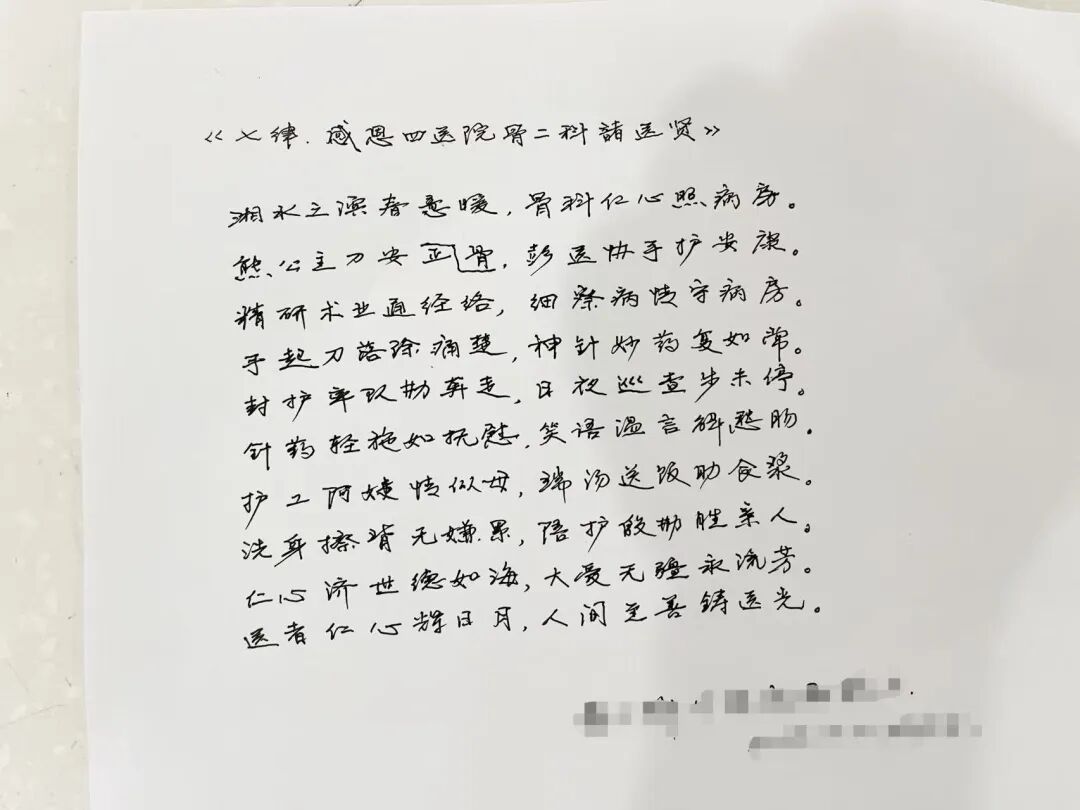 《七律.感恩四医院骨二科諸医贤》
湘水之滨春意暖，骨科仁心照病房。
熊公主刀安正骨，彭医快手护安康。
精研术业通经络，细察病情守病房。
手起刀落除痛楚，神针妙药复如常。
封护率队勤奔走，日夜巡查步未停。
针药轻施如抚慰，笑语温言解愁肠。
护工阿姨情似母，端汤送饭助食浆。
洗身擦背无嫌累，陪护殷勤胜亲人。
仁心济世德如海，大爱无疆永流芳。
医者仁心辉日月，人间至善铸医光。